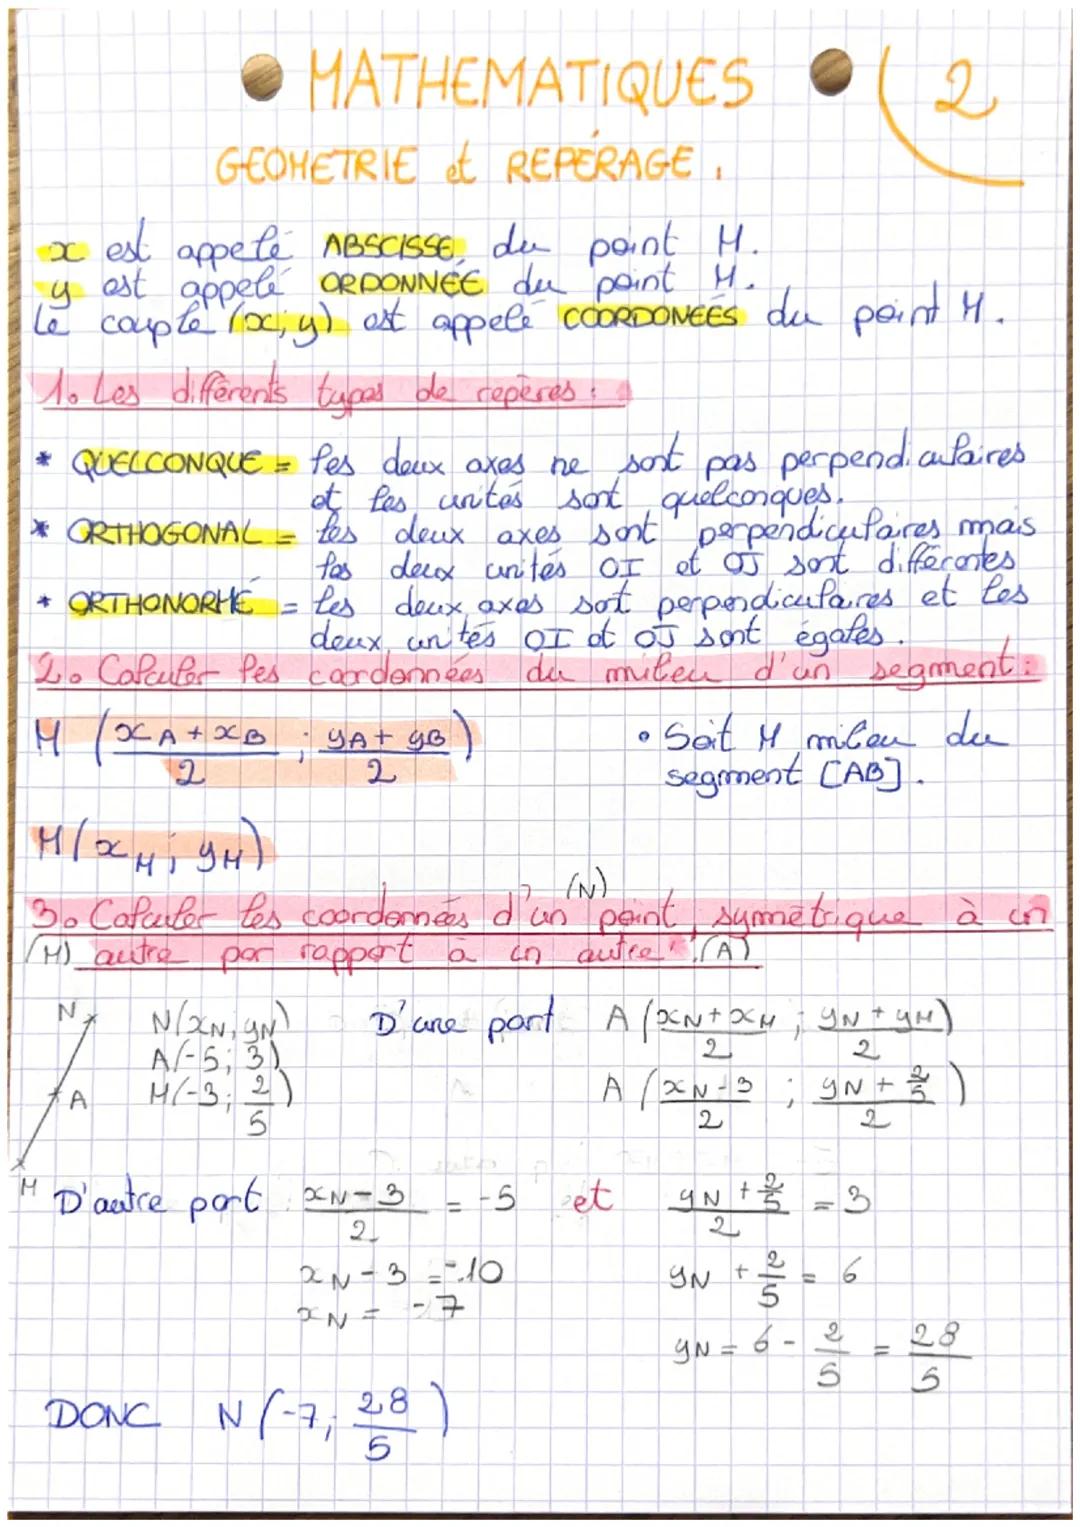 MATHEMATIQUES 2
GEOMETRIE et REPÉRAGE.
x est appelé ABSCISSE du point M.
y est appelé ORDONNÉE du point M.
Le couple (x; y) est appelé COORDONEÉS du point M.
1. Les différents types de repères :
* QUELCONQUE = les deux axes ne sont pas perpendiculaires
et les unités sont quelconques.
* ORTHOGONAL = les deux axes sont perpendiculaires mais
les deux unités OI et OJ sont différentes
* ORTHONORMÉ = les deux axes sot perpendiculaires et les
deux unités OI et OJ sont égales.
2. Calculer les coordonnées du milieu d'un segment :
M (xA + xB / 2 ; yA + yB / 2)
• Soit M milieu du
segment [AB].
M(xM ; yM)
(N)
3. Calculer les coordonnées d'un point symétrique à un
(M) autre par rapport à un autre. (A)
N
A
M
N(xN; yN)
A(-5; 3)
M(-3; 2/5)
D'une part A (xN + xM / 2 ; yN + yM / 2)
A (xN - 3 / 2 ; yN + 2/5 / 2)
D'autre part xN - 3 / 2 = -5 et yN + 2/5 / 2 = 3
xN - 3 = -10 yN + 2/5 = 6
xN = -7
yN = 6 - 2/5 = 28/5
DONC N (-7; 28/5)